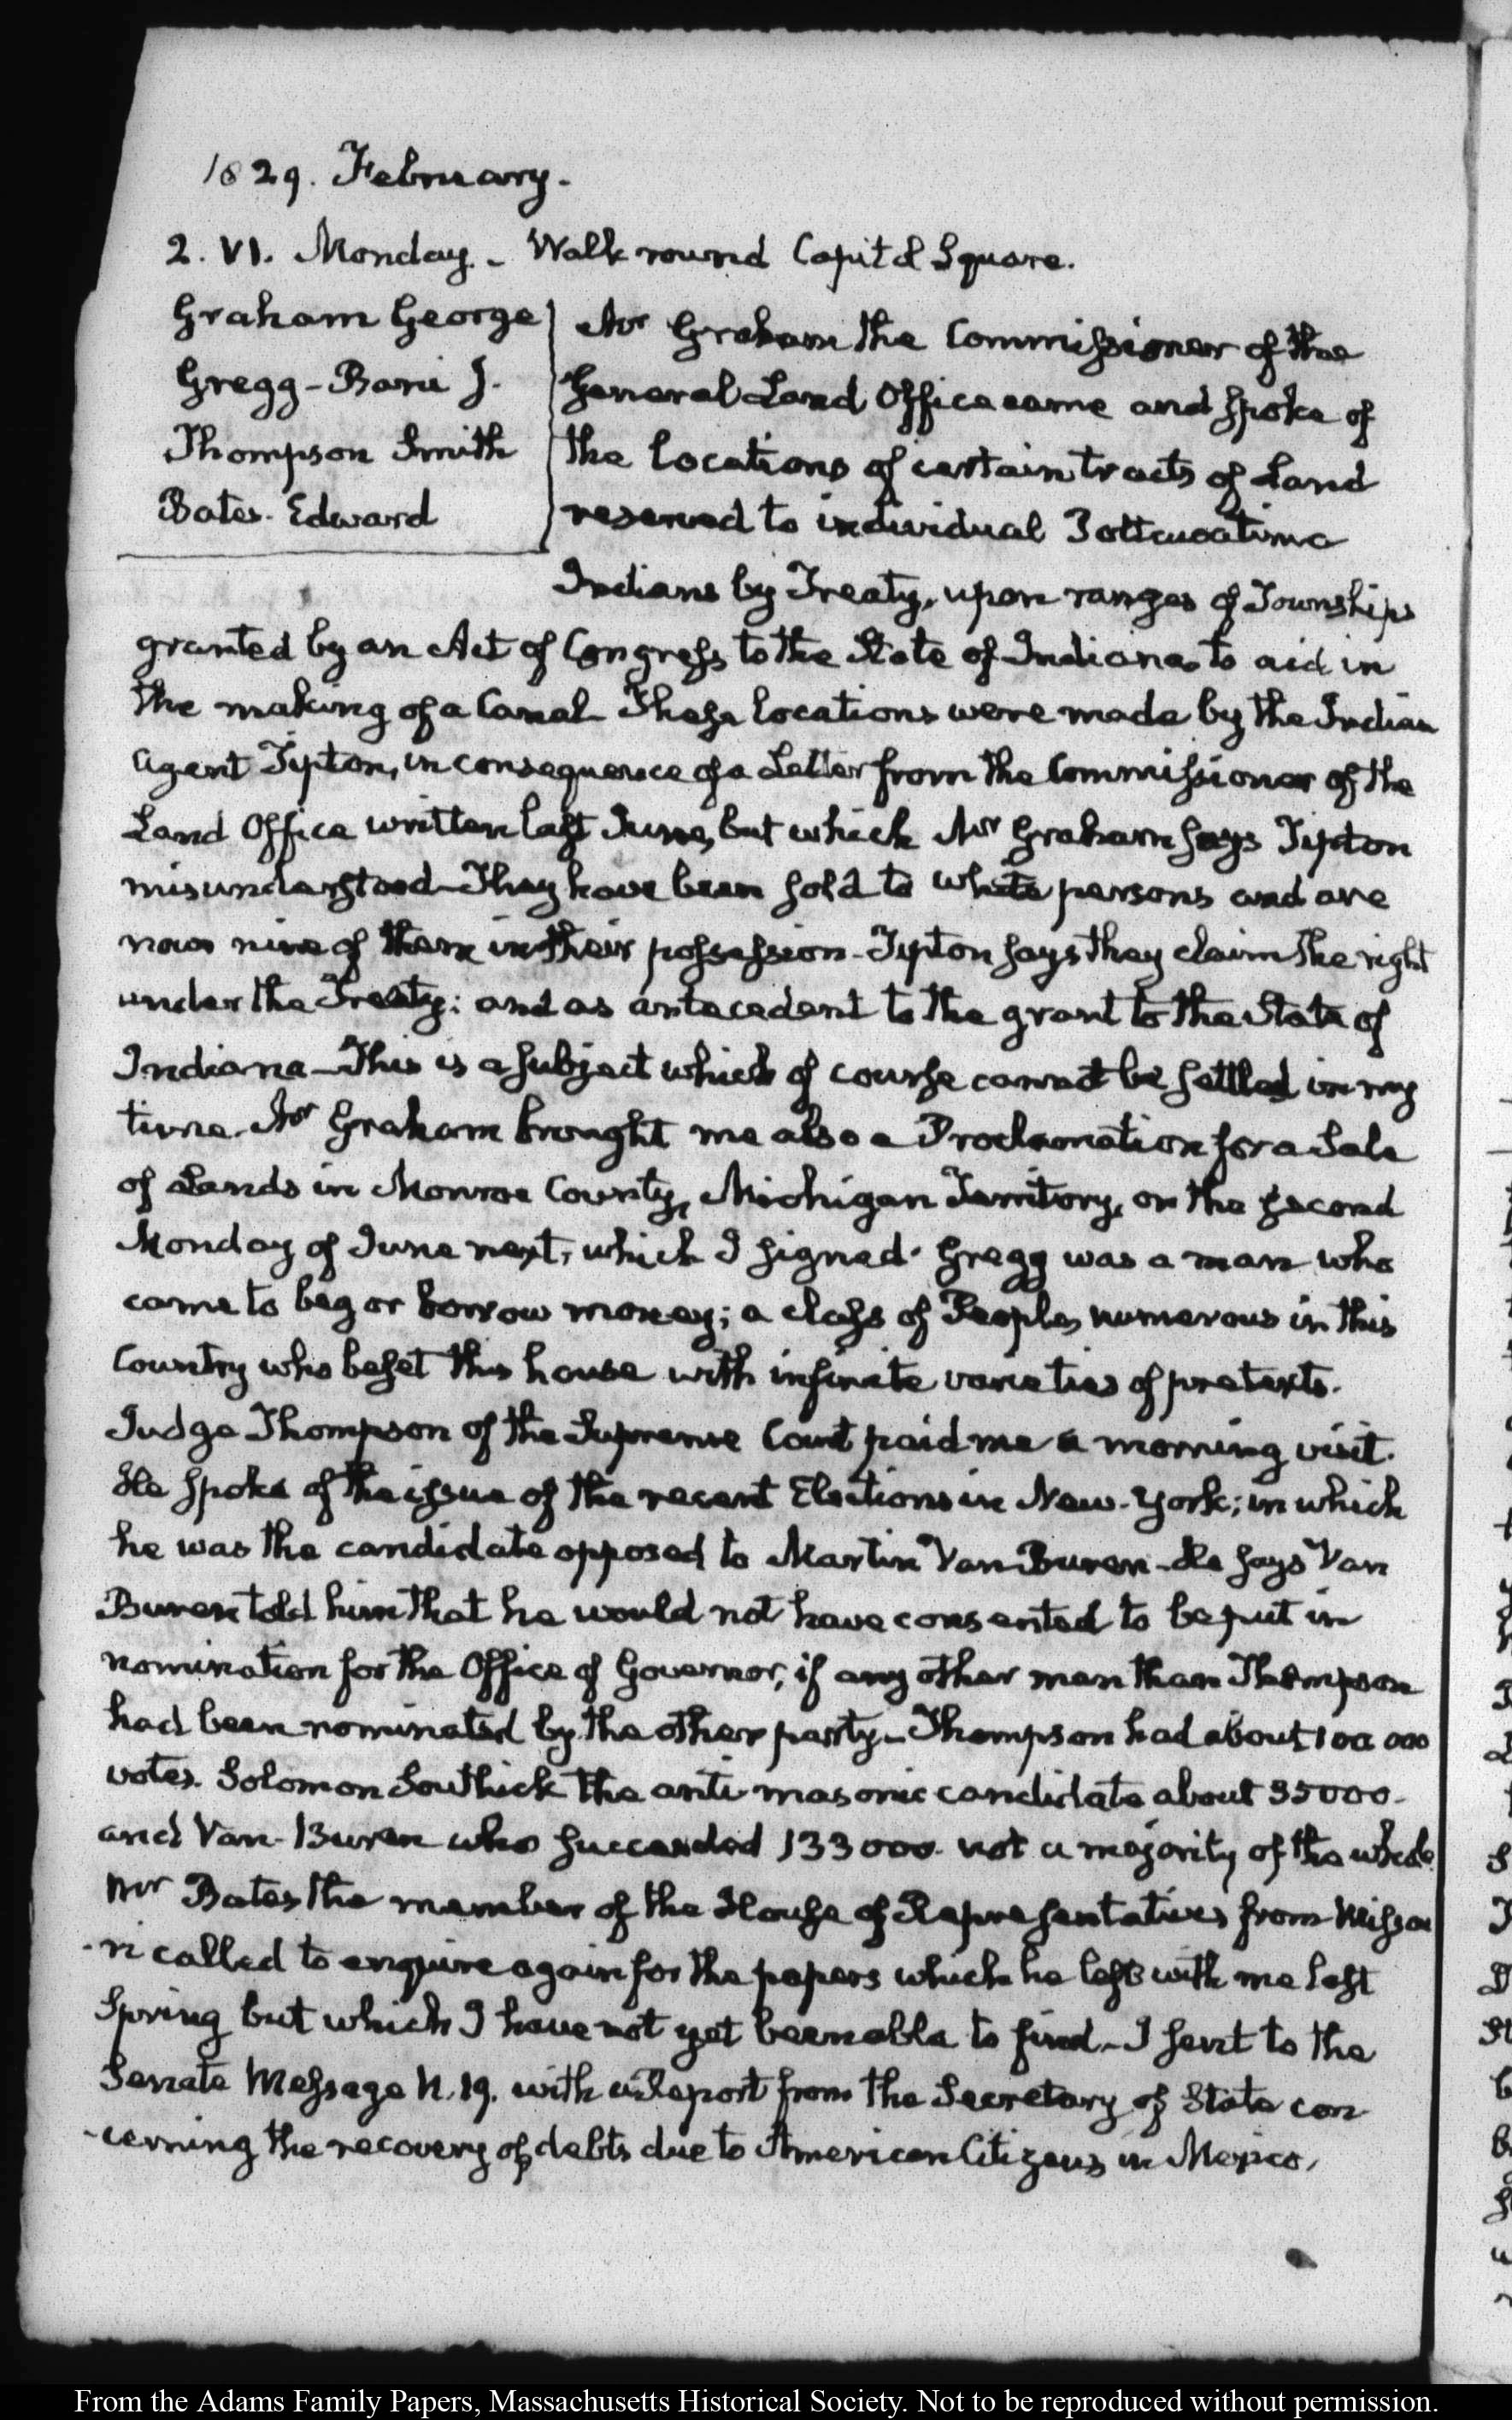 1829. February.
2. VI. Monday. - Walk round Capitol Square.
Graham George
Gregg - J.
Thompson Smith
Bates. Edward
Mr Graham the Commissioner of the
General Land Office came and spoke of
the locations of certain tracts of Land
reserved to individual
Indians by Treaty, upon ranges of Townships
granted by an Act of Congress to the State of Indiana to aid in
the making of a Canal These locations were made by the Indian
Agent Tipton, in consequence of a Letter from the Commissioner of the
Land Office written last June, but which Mr Graham says Tipton
misunderstood - They have been sold to white persons and are
now nine of them in their possession - Tipton says they claim the right
under the Treaty: and as antecedent to the grant to the State of
Indiana - This is a subject which of course cannot be settled in my
time. Mr Graham brought me also a Proclamation for a Sale
of Lands in Monroe County, Michigan Territory, on the second
Monday of June next, which I signed. Gregg was a man who
came to beg or borrow money; a class of People, numerous in this
Country who beset this house with infinite varieties of pretexts.
Judge Thompson of the Supreme Court paid me a morning visit.
He spoke of the issue of the recent Elections in New-York; in which
he was the candidate opposed to Martin Van Buren - He says Van
Buren told him that he would not have consented to be put in
nomination for the Office of Governor, if any other man than Thompson
had been nominated by the other party - Thompson had about 100 000
votes. Solomon Southick the anti masonic candidate about 35000.
and Van-Buren who succeeded 133000. not a majority of the whole
Mr Bates the member of the House of Representatives from Missou
-ri called to enquire again for the papers which he left with me last
Spring but which I have not yet been able to find - I sent to the
Senate Message N. 19. with a Report from the Secretary of State con
-cerning the recovery of debts due to American Citizens in Mexico,
From the Adams Family Papers, Massachusetts Historical Society. Not to be reproduced without permission.